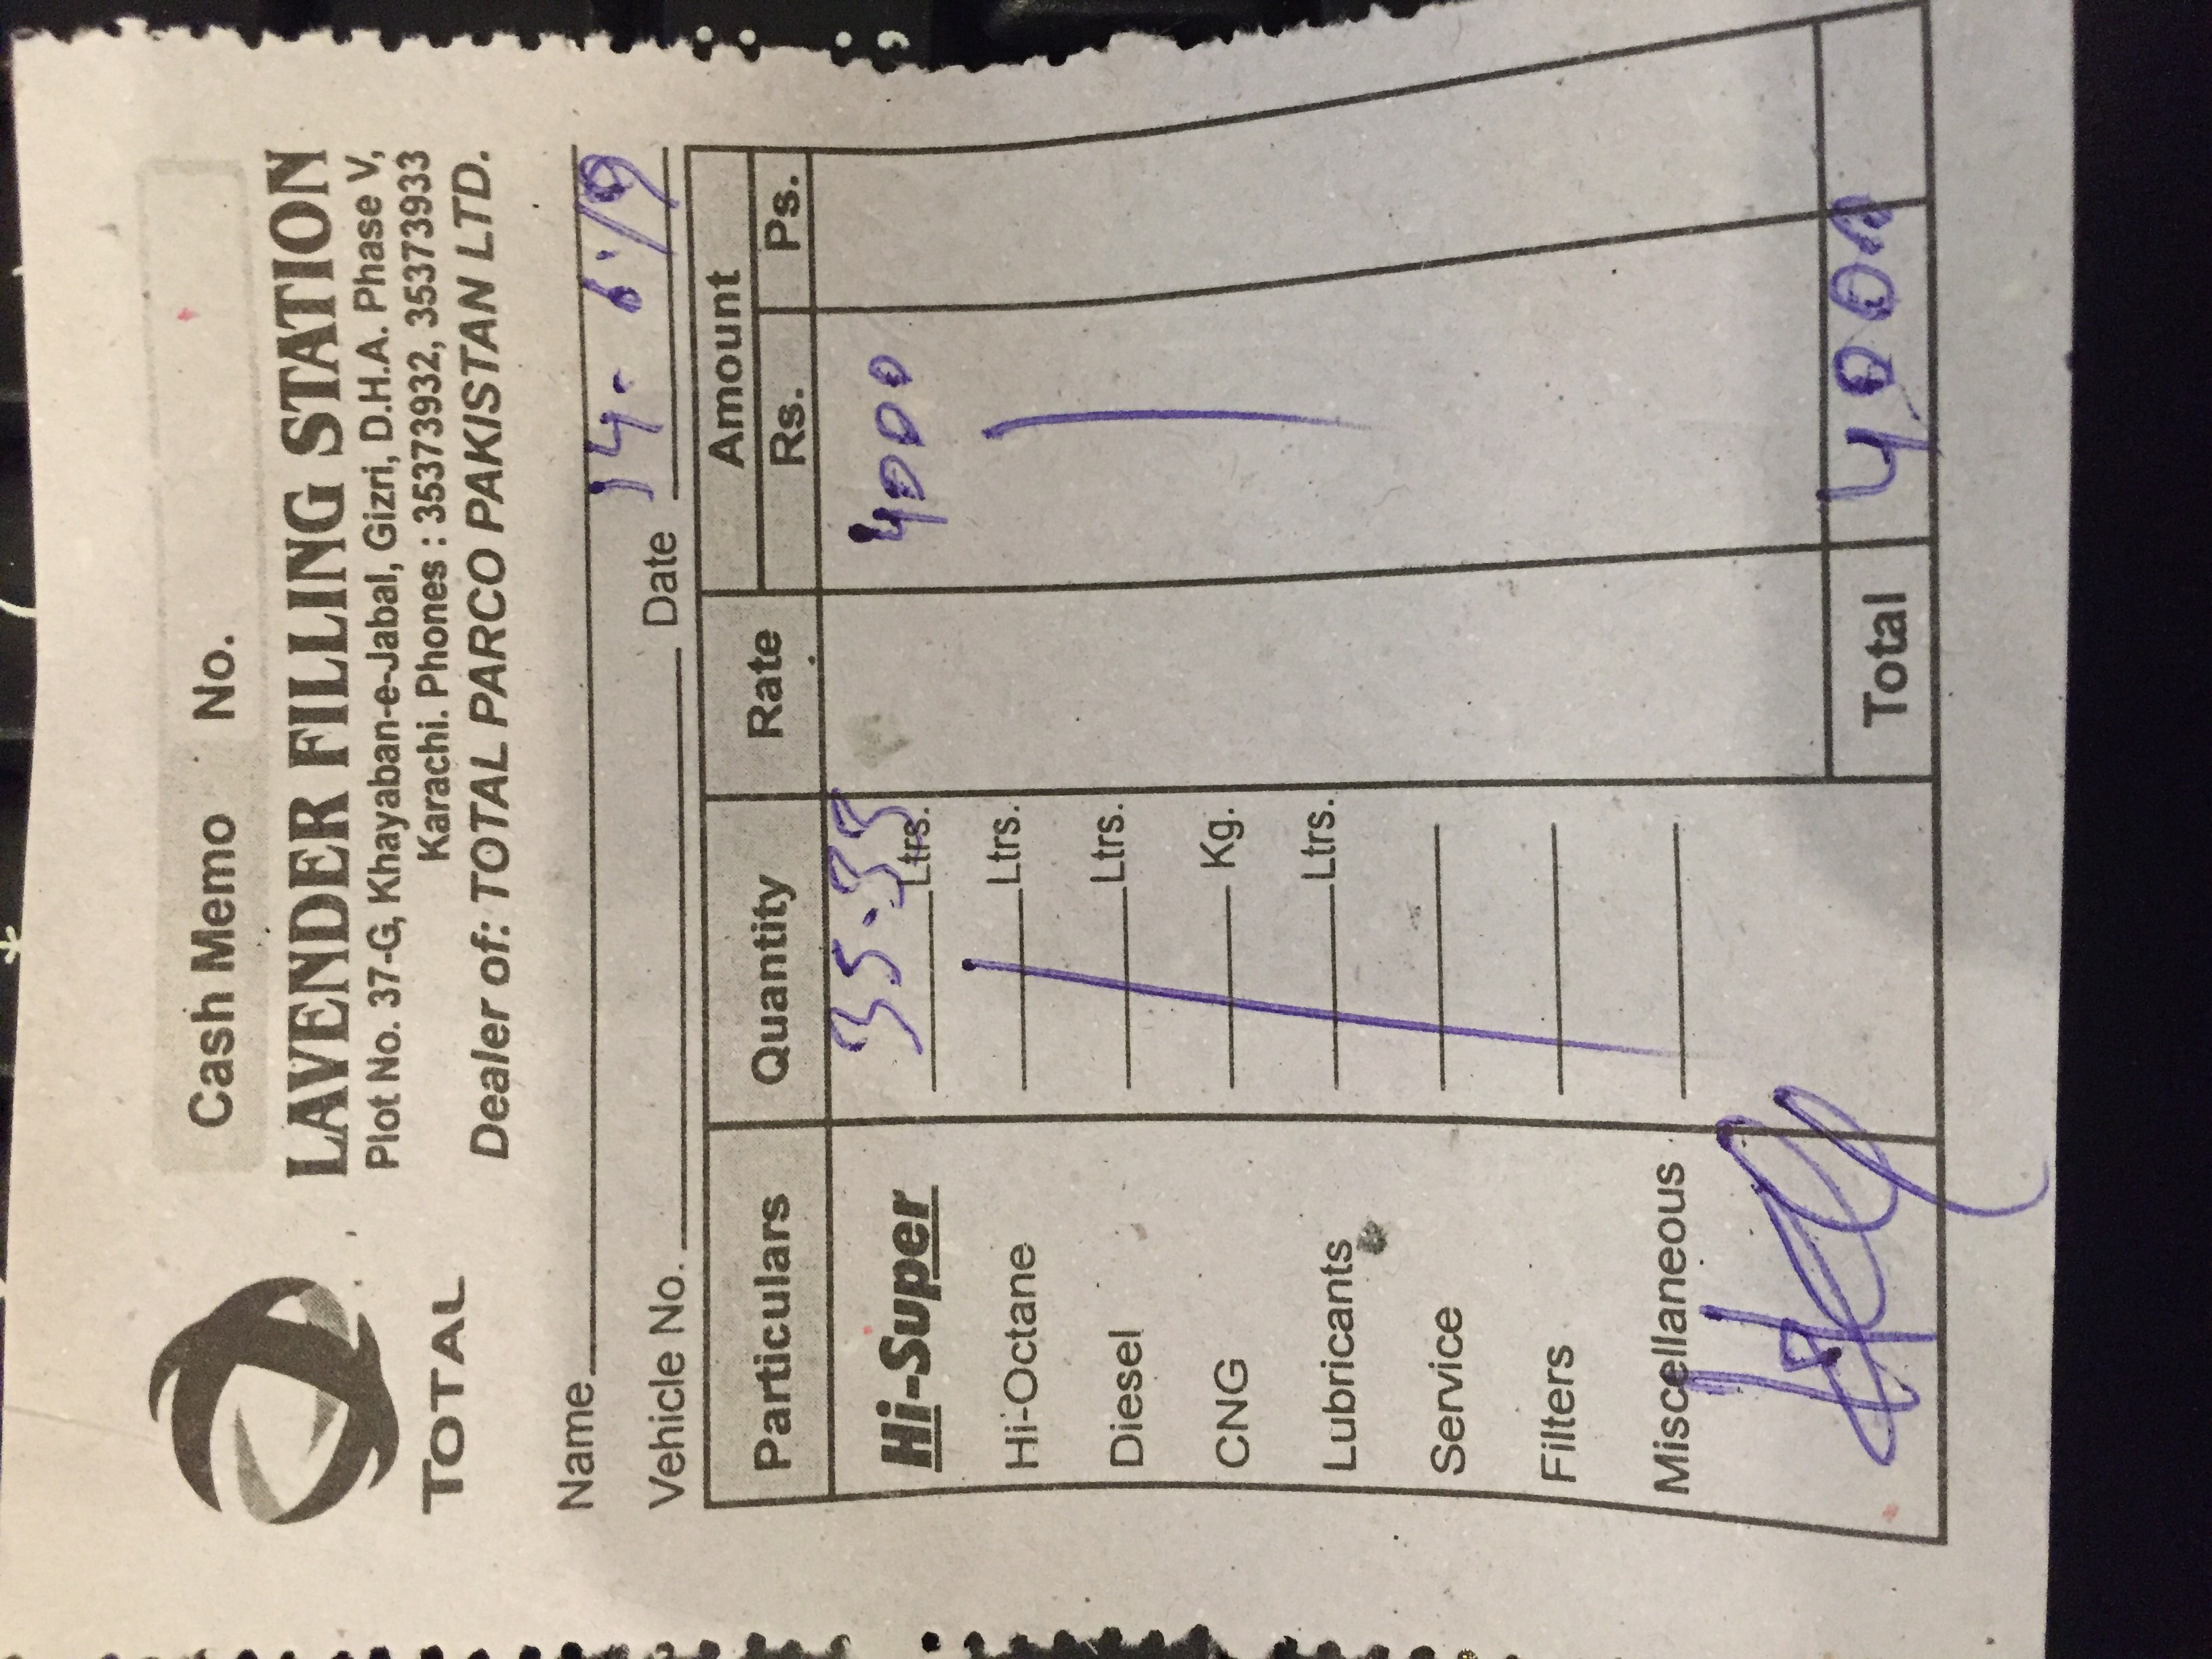 Cash Memo No.
TOTAL
LAVENDER FILLING STATION
Plot No. 37-G, Khayaban-e-Jabal, Gizri, D.H.A. Phase V,
Karachi. Phones : 35373932, 35373933
Dealer of: TOTAL PARCO PAKISTAN LTD.
Name
Vehicle No. Date 14-6-19
Particulars Quantity Rate Amount
Rs. Ps.
Hi-Super 35.33 Ltrs. 4000
Hi-Octane Ltrs.
Diesel Ltrs.
CNG Kg.
Lubricants Ltrs.
Service
Filters
Miscellaneous
Total 4000